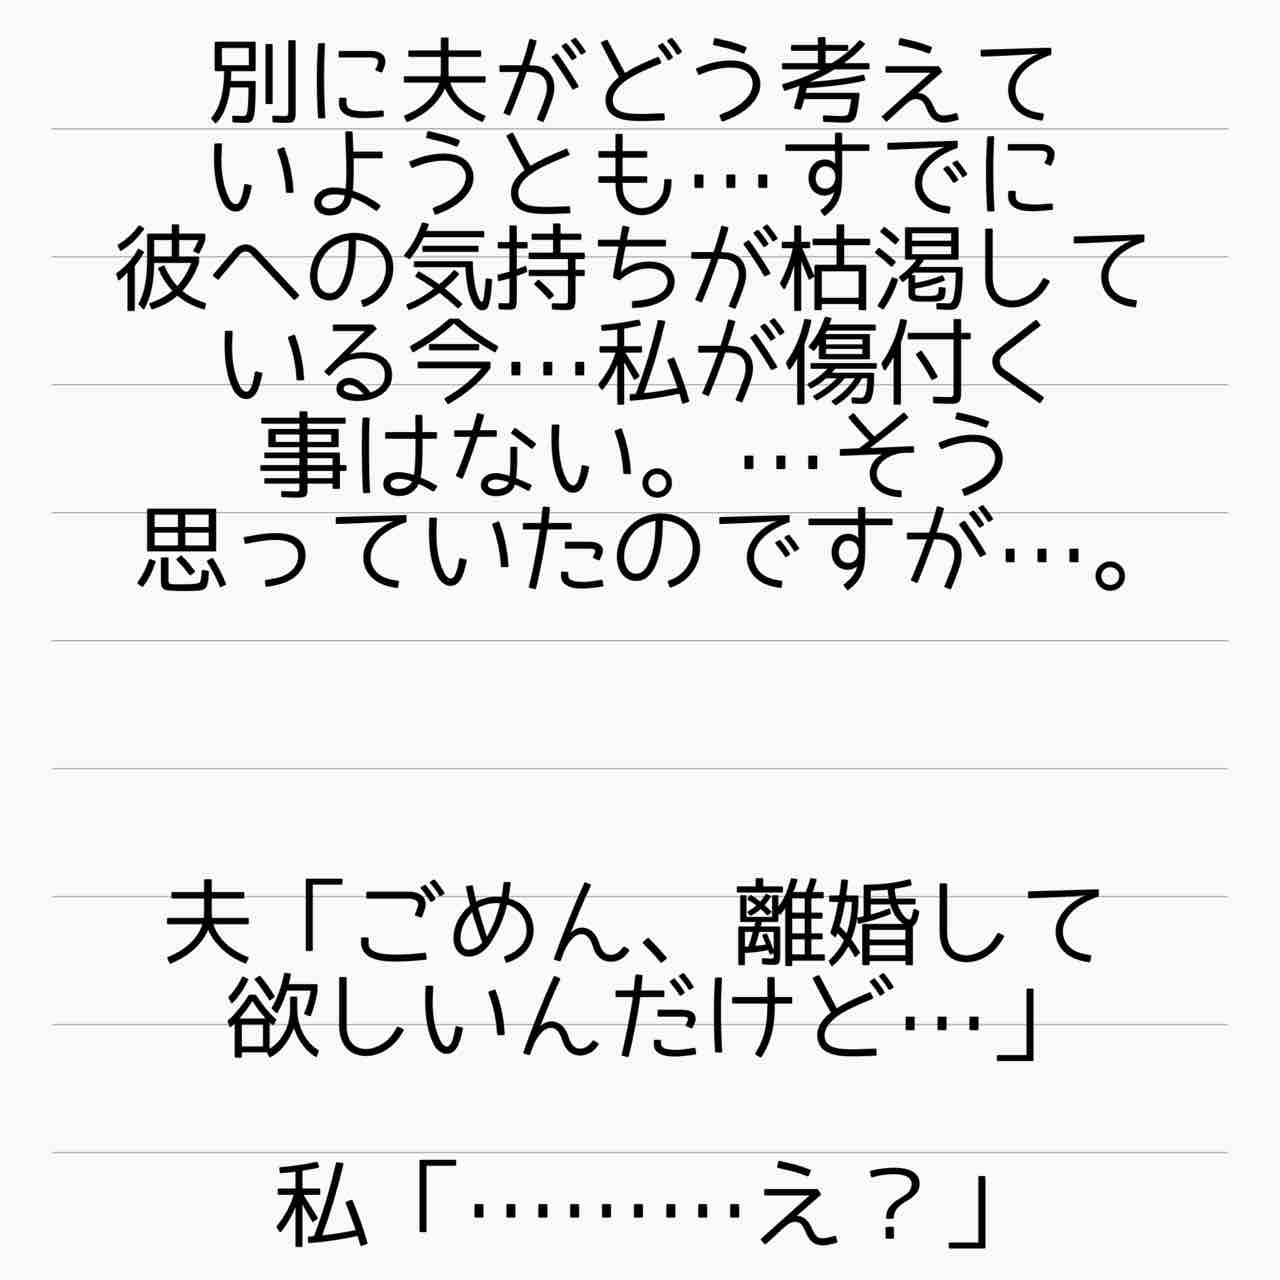 別に夫がどう考えて
いようとも…すでに
彼への気持ちが枯渇して
いる今…私が傷付く
事はない。…そう
思っていたのですが…。
夫「ごめん、離婚して
欲しいんだけど…」
私「………え？」